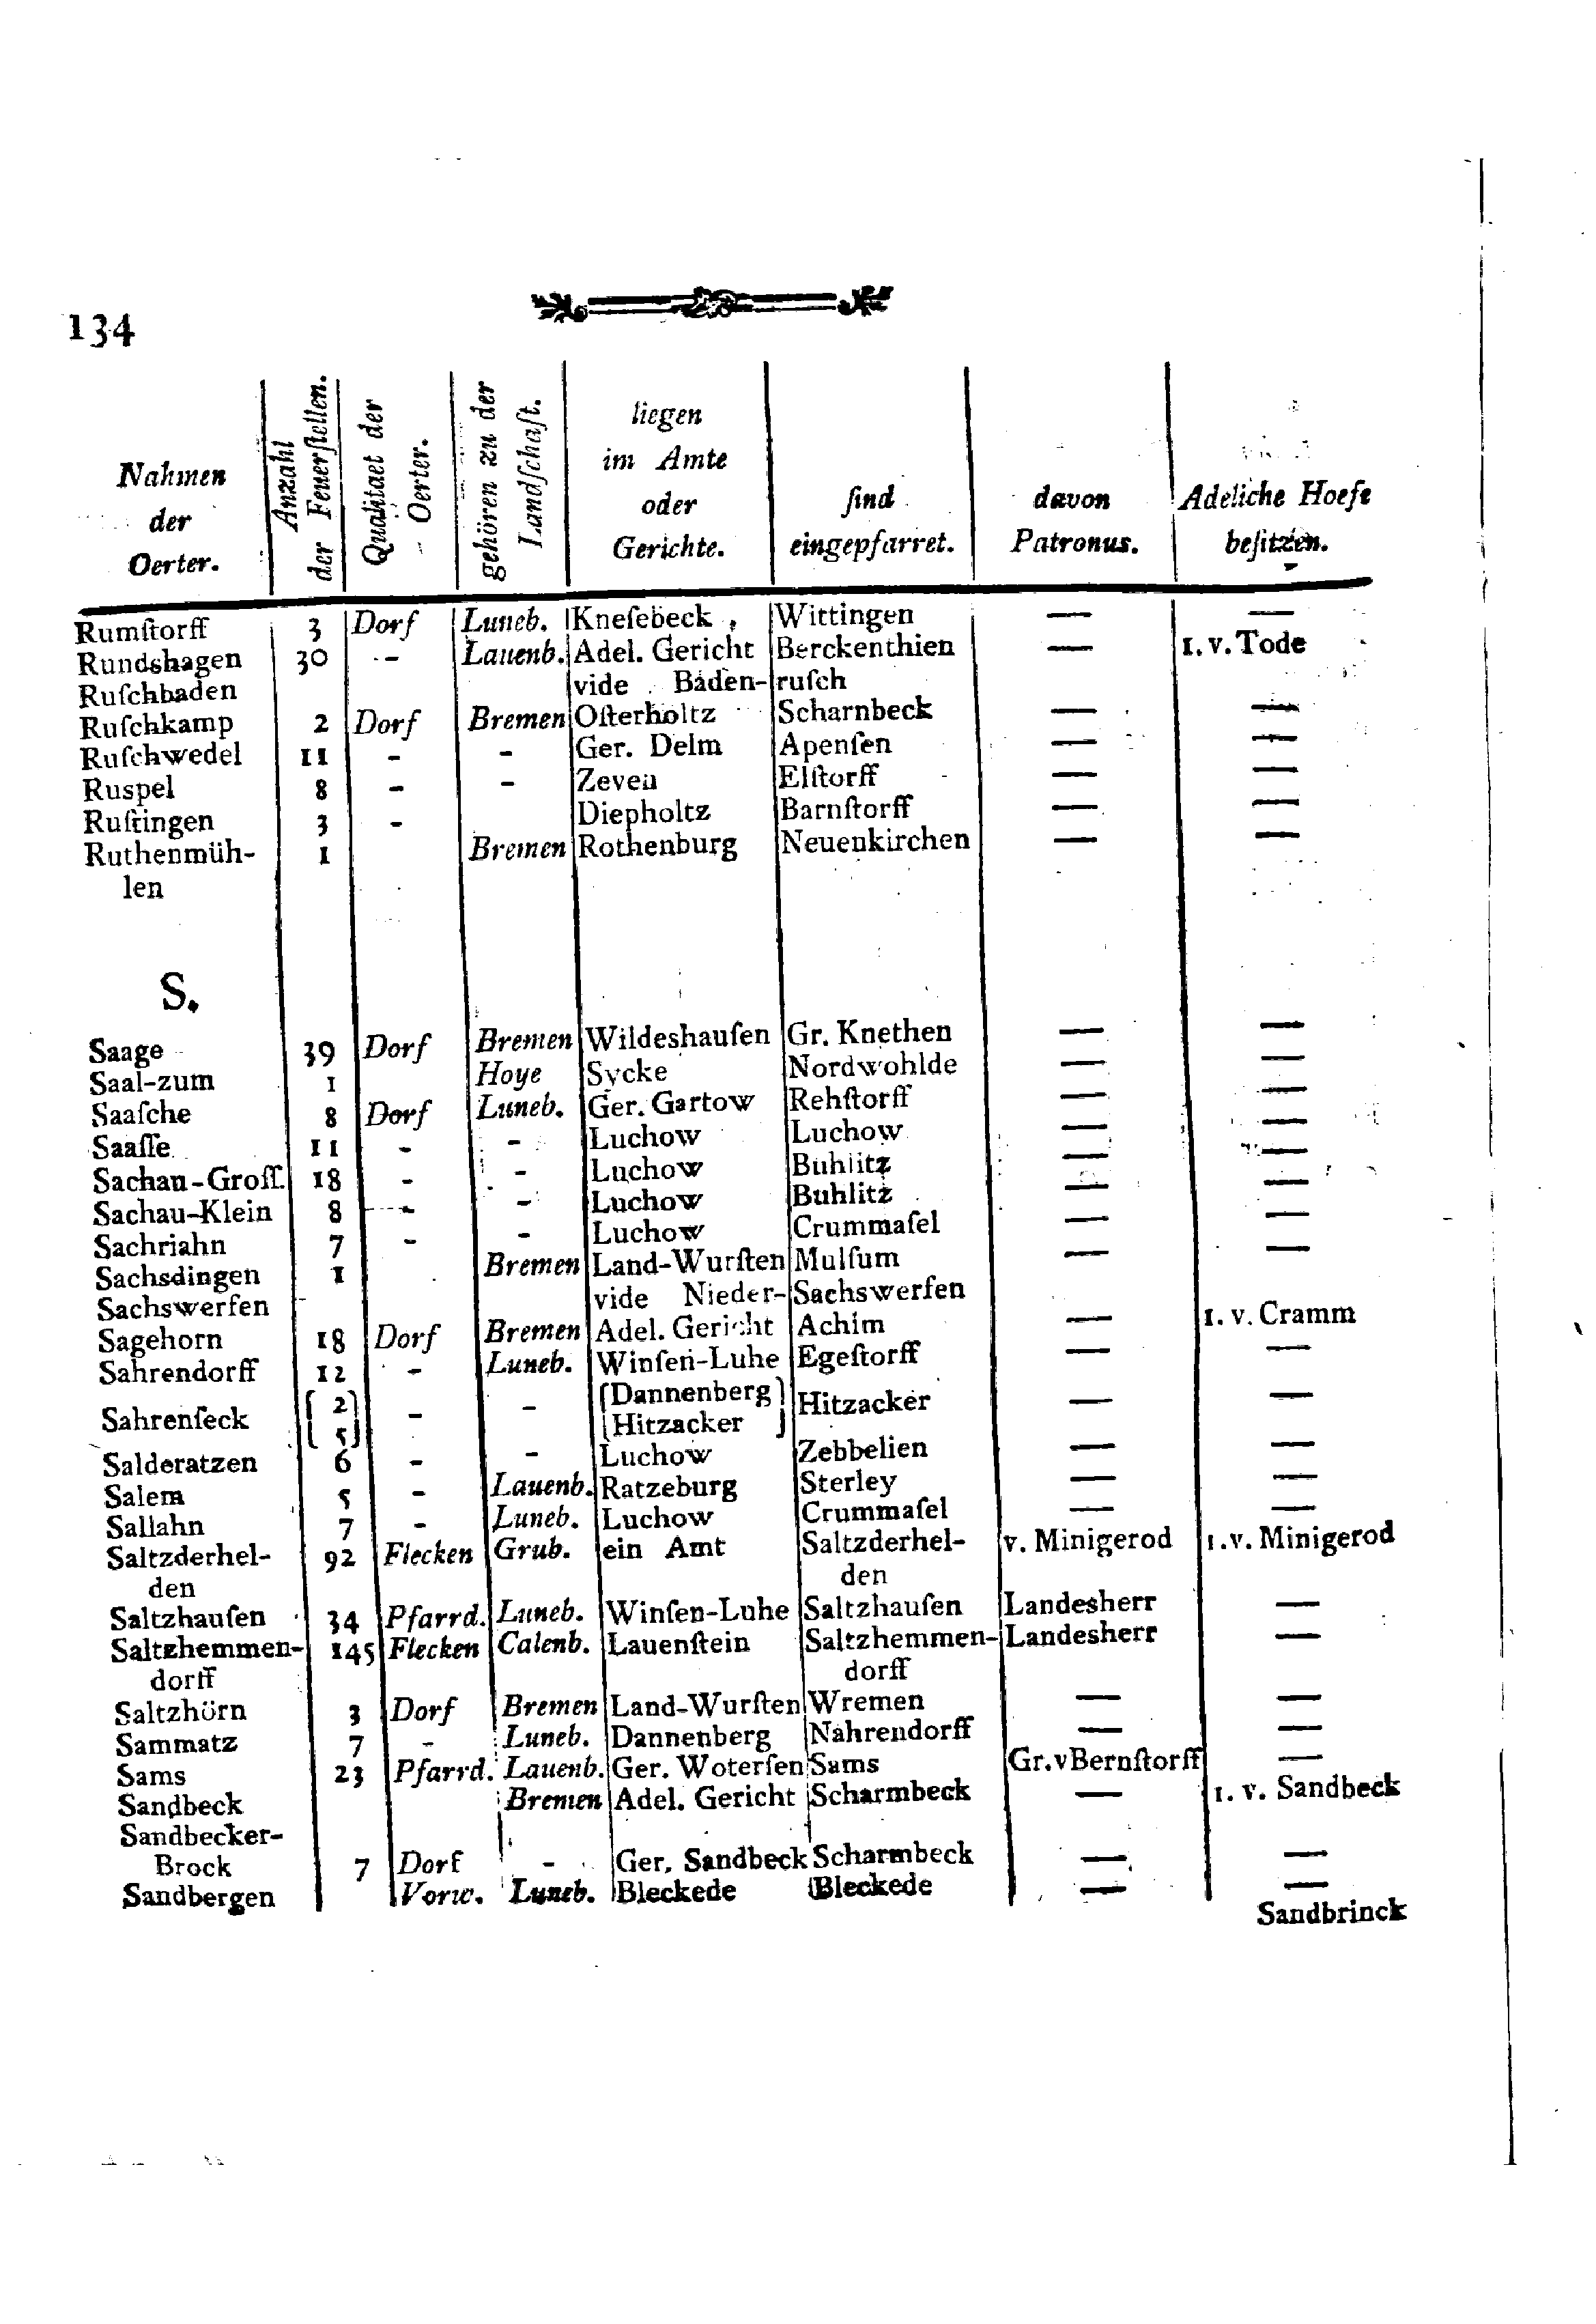 134
Nahmen der Oerter. | Anzahl der Feuerſtellen. | Qualitaet der Oerter. | gehören zu der Landſchaft. | liegen im Amte oder Gerichte. | ſind eingepfarret. | davon Patronus. | Adeliche Hoefe beſitzen.
Rumſtorff 3 Dorf Luneb. Kneſebeck, Wittingen — —
Rundshagen 30 - Lauenb. Adel. Gericht Berckenthien — 1. v. Tode
Ruſchbaden vide Baden-ruſch
Ruſchkamp 2 Dorf Bremen Oſterholtz Scharnbeck — —
Ruſchwedel 11 - - Ger. Delm Apenſen — —
Ruspel 8 - - Zeven Elſtorff — —
Ruſtingen 3 - Diepholtz Barnſtorff — —
Ruthenmüh- 1 Bremen Rothenburg Neuenkirchen — —
len
S.
Saage 39 Dorf Bremen Wildeshauſen Gr. Knethen — —
Saal-zum 1 Hoye Sycke Nordwohlde — —
Saaſche 8 Dorf Luneb. Ger. Gartow Rehſtorff — —
Saaſſe 11 - - Luchow Luchow — —
Sachau-Groſſ. 18 - - Luchow Buhlitz — —
Sachau-Klein 8 - - Luchow Buhlitz — —
Sachriahn 7 - - Luchow Crummaſel — —
Sachsdingen 1 Bremen Land-Wurſten Mulſum — —
Sachswerfen vide Nieder-Sachswerfen
Sagehorn 18 Dorf Bremen Adel. Gericht Achim — 1. v. Cramm
Sahrendorff 12 - Luneb. Winſen-Luhe Egeſtorff — —
Sahrenſeck {2} {5} - - {Dannenberg} {Hitzacker} Hitzacker — —
Salderatzen 6 - - Luchow Zebbelien — —
Salem 5 - Lauenb. Ratzeburg Sterley — —
Sallahn 7 - Luneb. Luchow Crummaſel — —
Saltzderhel- 92 Flecken Grub. ein Amt Saltzderhel- v. Minigerod 1. v. Minigerod
den den
Saltzhauſen 34 Pfarrd. Luneb. Winſen-Luhe Saltzhauſen Landesherr —
Saltzhemmen- 145 Flecken Calenb. Lauenſtein Saltzhemmen- Landesherr —
dorff dorff
Saltzhörn 3 Dorf Bremen Land-Wurſten Wremen — —
Sammatz 7 - Luneb. Dannenberg Nahrendorff — —
Sams 23 Pfarrd. Lauenb. Ger. Woterſen Sams Gr. v Bernſtorff —
Sandbeck Bremen Adel. Gericht Scharmbeck — 1. v. Sandbeck
Sandbecker-
Brock 7 Dorf - Ger. Sandbeck Scharmbeck — —
Sandbergen Vorw. Luneb. Bleckede Bleckede — —
Sandbrinck